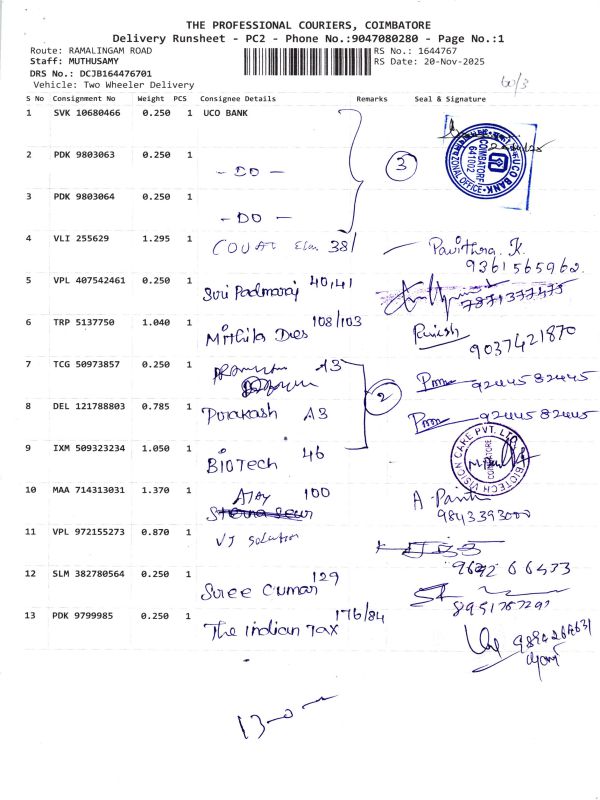 THE PROFESSIONAL COURIERS, COIMBATORE
Delivery Runsheet - PC2 - Phone No.:9047080280 - Page No.:1
Route: RAMALINGAM ROAD RS No.: 1644767
Staff: MUTHUSAMY RS Date: 20-Nov-2025
DRS No.: DCJB164476701
Vehicle: Two Wheeler Delivery
60/3
S No Consignment No Weight PCS Consignee Details Remarks Seal & Signature
1 SVK 10680466 0.250 1 UCO BANK
2 PDK 9803063 0.250 1 - DO - 3
UCO BANK COIMBATORE 641002 ZONAL OFFICE
3 PDK 9803064 0.250 1 - DO -
4 VLI 255629 1.295 1 38/ Pavithra. K.
9361565962.
5 VPL 407542461 0.250 1 Suri Padmaraj 40,41
6 TRP 5137750 1.040 1 Mithila Dies 108/103 Ramesh
9037421870
7 TCG 50973857 0.250 1 A3 92445 82445
2
8 DEL 121788803 0.785 1 Purakash A3 92445 82445
9 IXM 509323234 1.050 1 BIOTech 46
BIOTECH VISION CARE PVT. LTD. COIMBATORE
10 MAA 714313031 1.370 1 AJAY 100 A.
9843393000
11 VPL 972155273 0.870 1 VJ Solution
12 SLM 382780564 0.250 1 Suree Cumar 129
8951787297
13 PDK 9799985 0.250 1 The indian Tax 176/84
13-0-